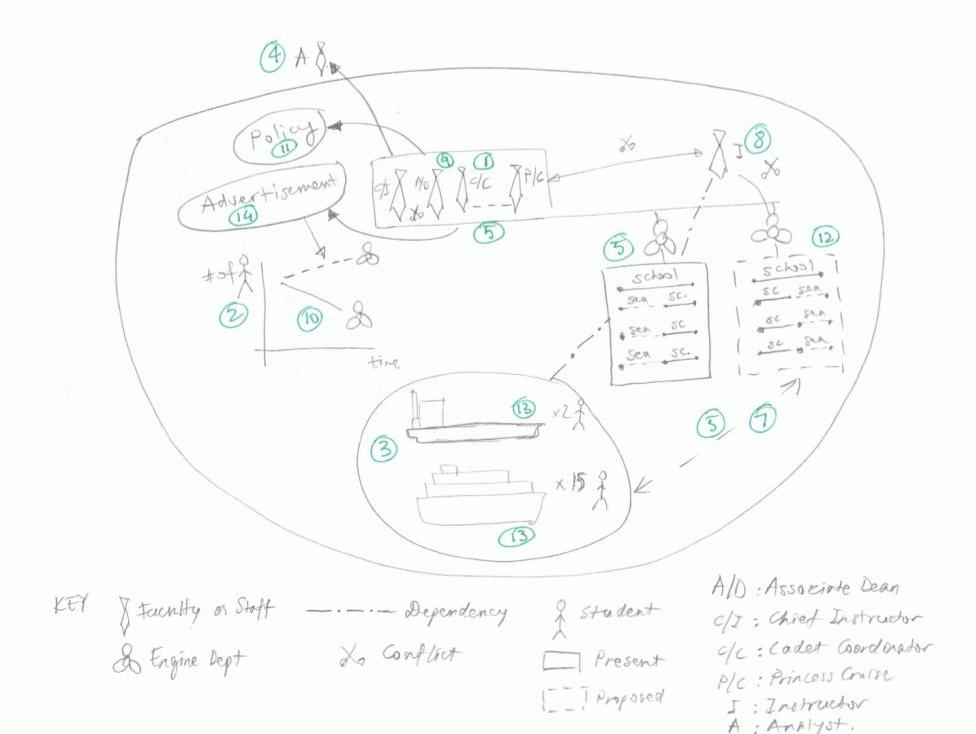 4 A
Policy
11
Advertisement
14
C/I A/D 9 1 C/C P/C
5
I 8
# of
2
10
time
5
school
sea sc.
sea sc
sea sc.
12
school
sc sea
sc sea
sc sea
3
13 x2
x 15
13
5 7
KEY
Faculty or Staff
Dependency
Student
Engine Dept
Conflict
Present
Proposed
A/D : Associate Dean
C/I : Chief Instructor
C/C : Cadet Coordinator
P/C : Princess Cruise
I : Instructor
A : Analyst.